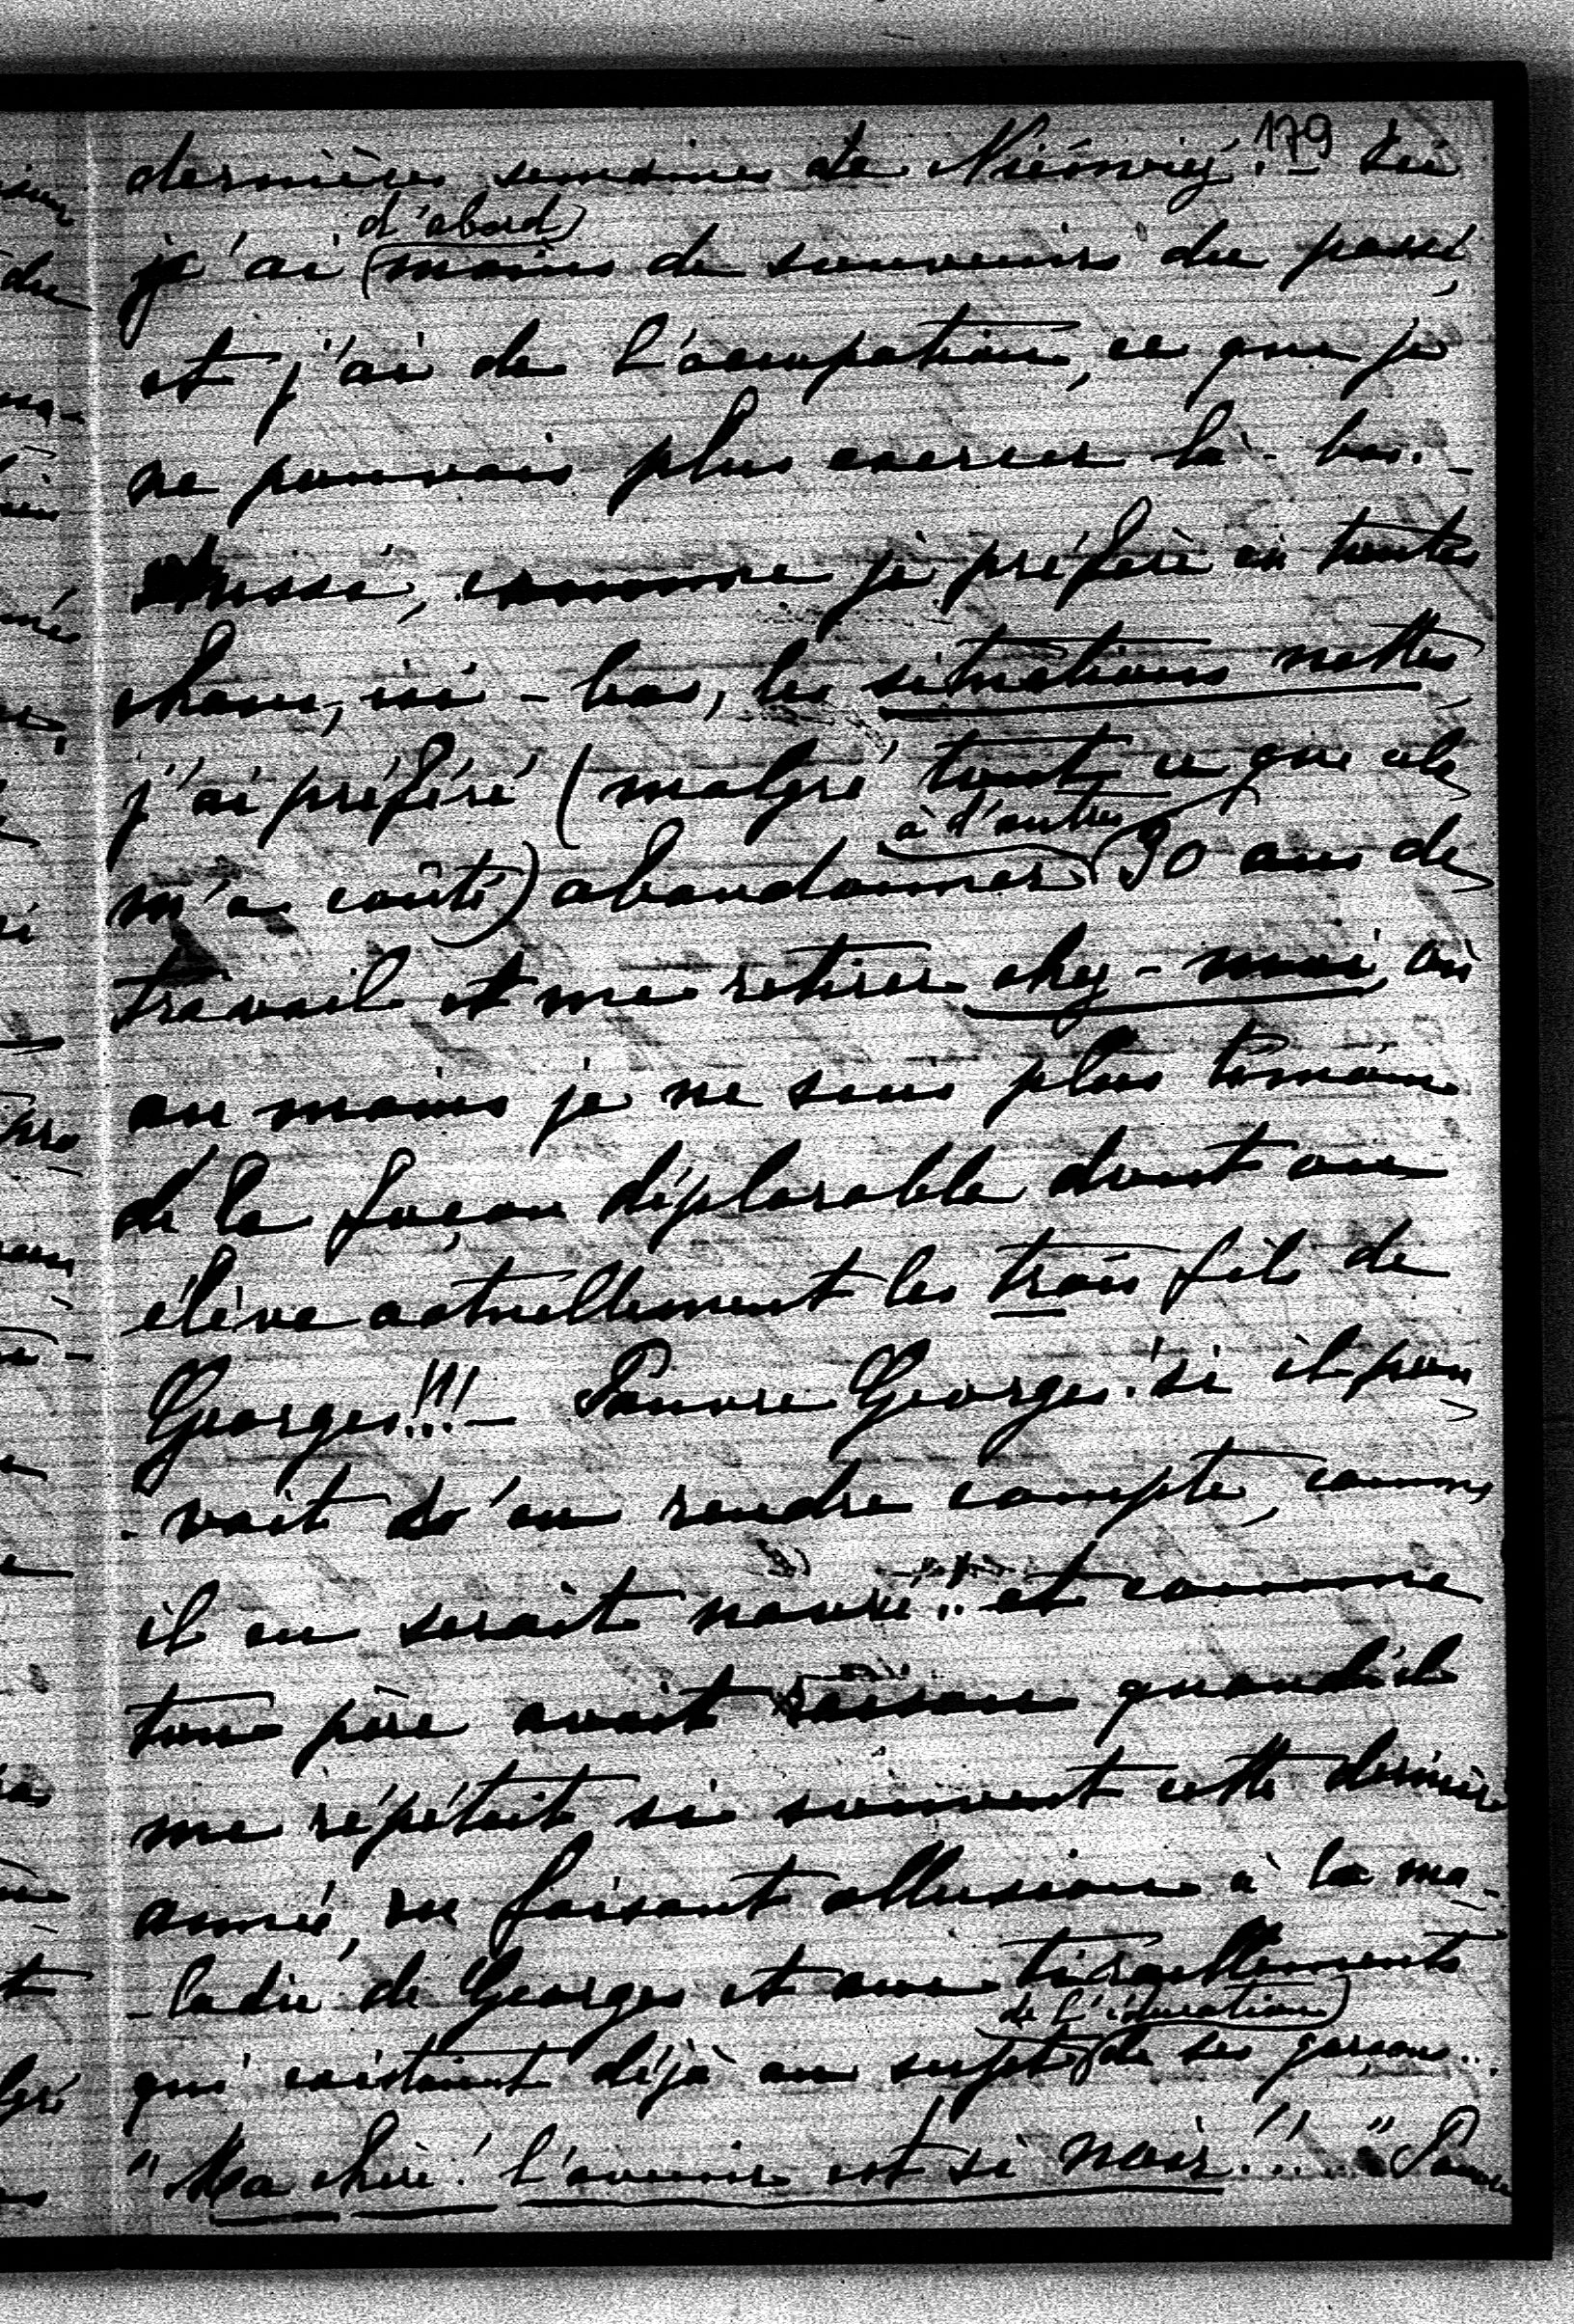 179
dernières semaines de Nieśwież. – Ici
d'abord
j'ai moins de souvenirs du passé,
et j'ai de l'occupation, ce que je
ne pouvais plus exercer là-bas. –
Aussi, comme je préfère en toutes
choses, ici-bas, les situations nettes,
j'ai préféré (malgré tout ce que cela
à d'autres
m'a coûté) abandonner 30 ans de
travail et me retirer chez-moi, où
au moins je ne suis plus témoin
de la façon déplorable dont on
élève actuellement les trois fils de
Georges!!! – Pauvre Georges! si il pou
-vait s'en rendre compte, comme
il en serait navré.. et comme
ton père avait raison quand il
me répétait si souvent cette dernière
année, en faisant allusion à la ma-
-ladie de Georges et aux tiraillements
de l'éducation
qui existaient déjà au sujet de ses garçons...
"Ma chère! l'avenir est si noir!!..." Pauvre